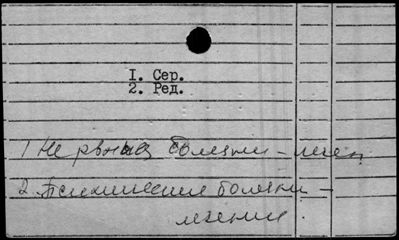 1. Сер.
2. Ред.
1 Нервныя болезни - лечен.
2 Психическия болезни -
лечение.